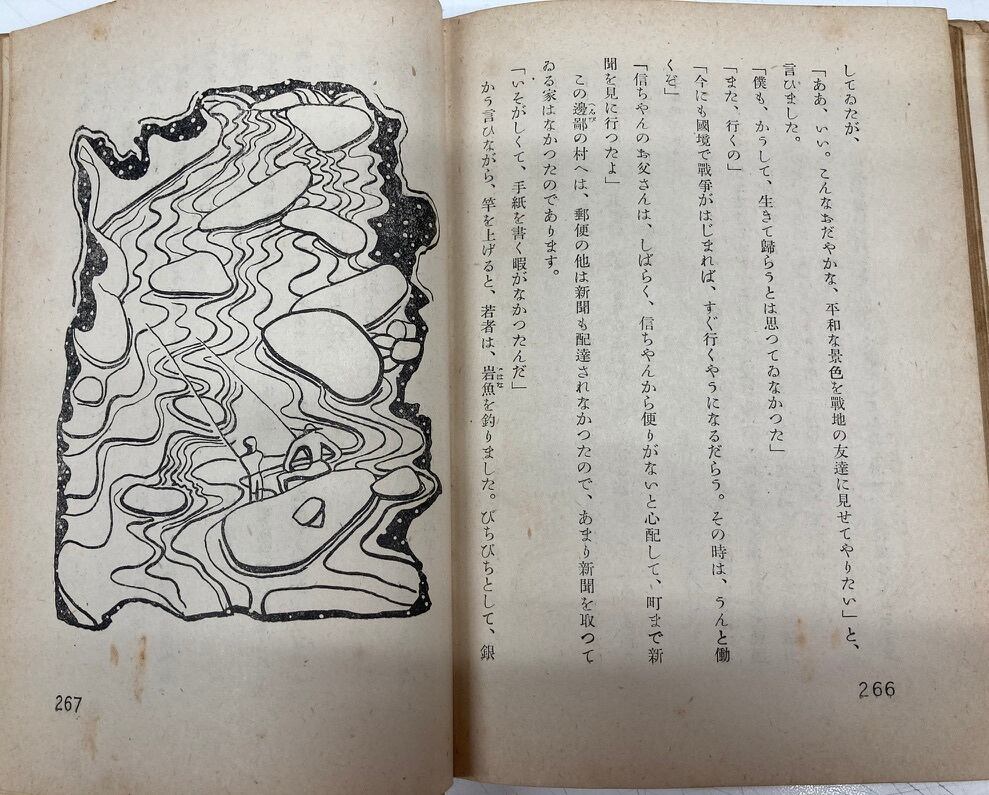 してゐたが、
「ああ、いい。こんなおだやかな、平和な景色を戰地の友達に見せてやりたい」と、
言ひました。
「僕も、かうして、生きて歸らうとは思つてゐなかつた」
「また、行くの」
「今にも國境で戰爭がはじまれば、すぐ行くやうになるだらう。その時は、うんと働
くぞ」
「信ちやんのお父さんは、しばらく、信ちやんから便りがないと心配して、町まで新
聞を見に行つたよ」
この邊鄙の村へは、郵便の他は新聞も配達されなかつたので、あまり新聞を取つて
ゐる家はなかつたのであります。
「いそがしくて、手紙を書く暇がなかつたんだ」
かう言ひながら、竿を上げると、若者は、岩魚を釣りました。ぴちぴちとして、銀
266
267